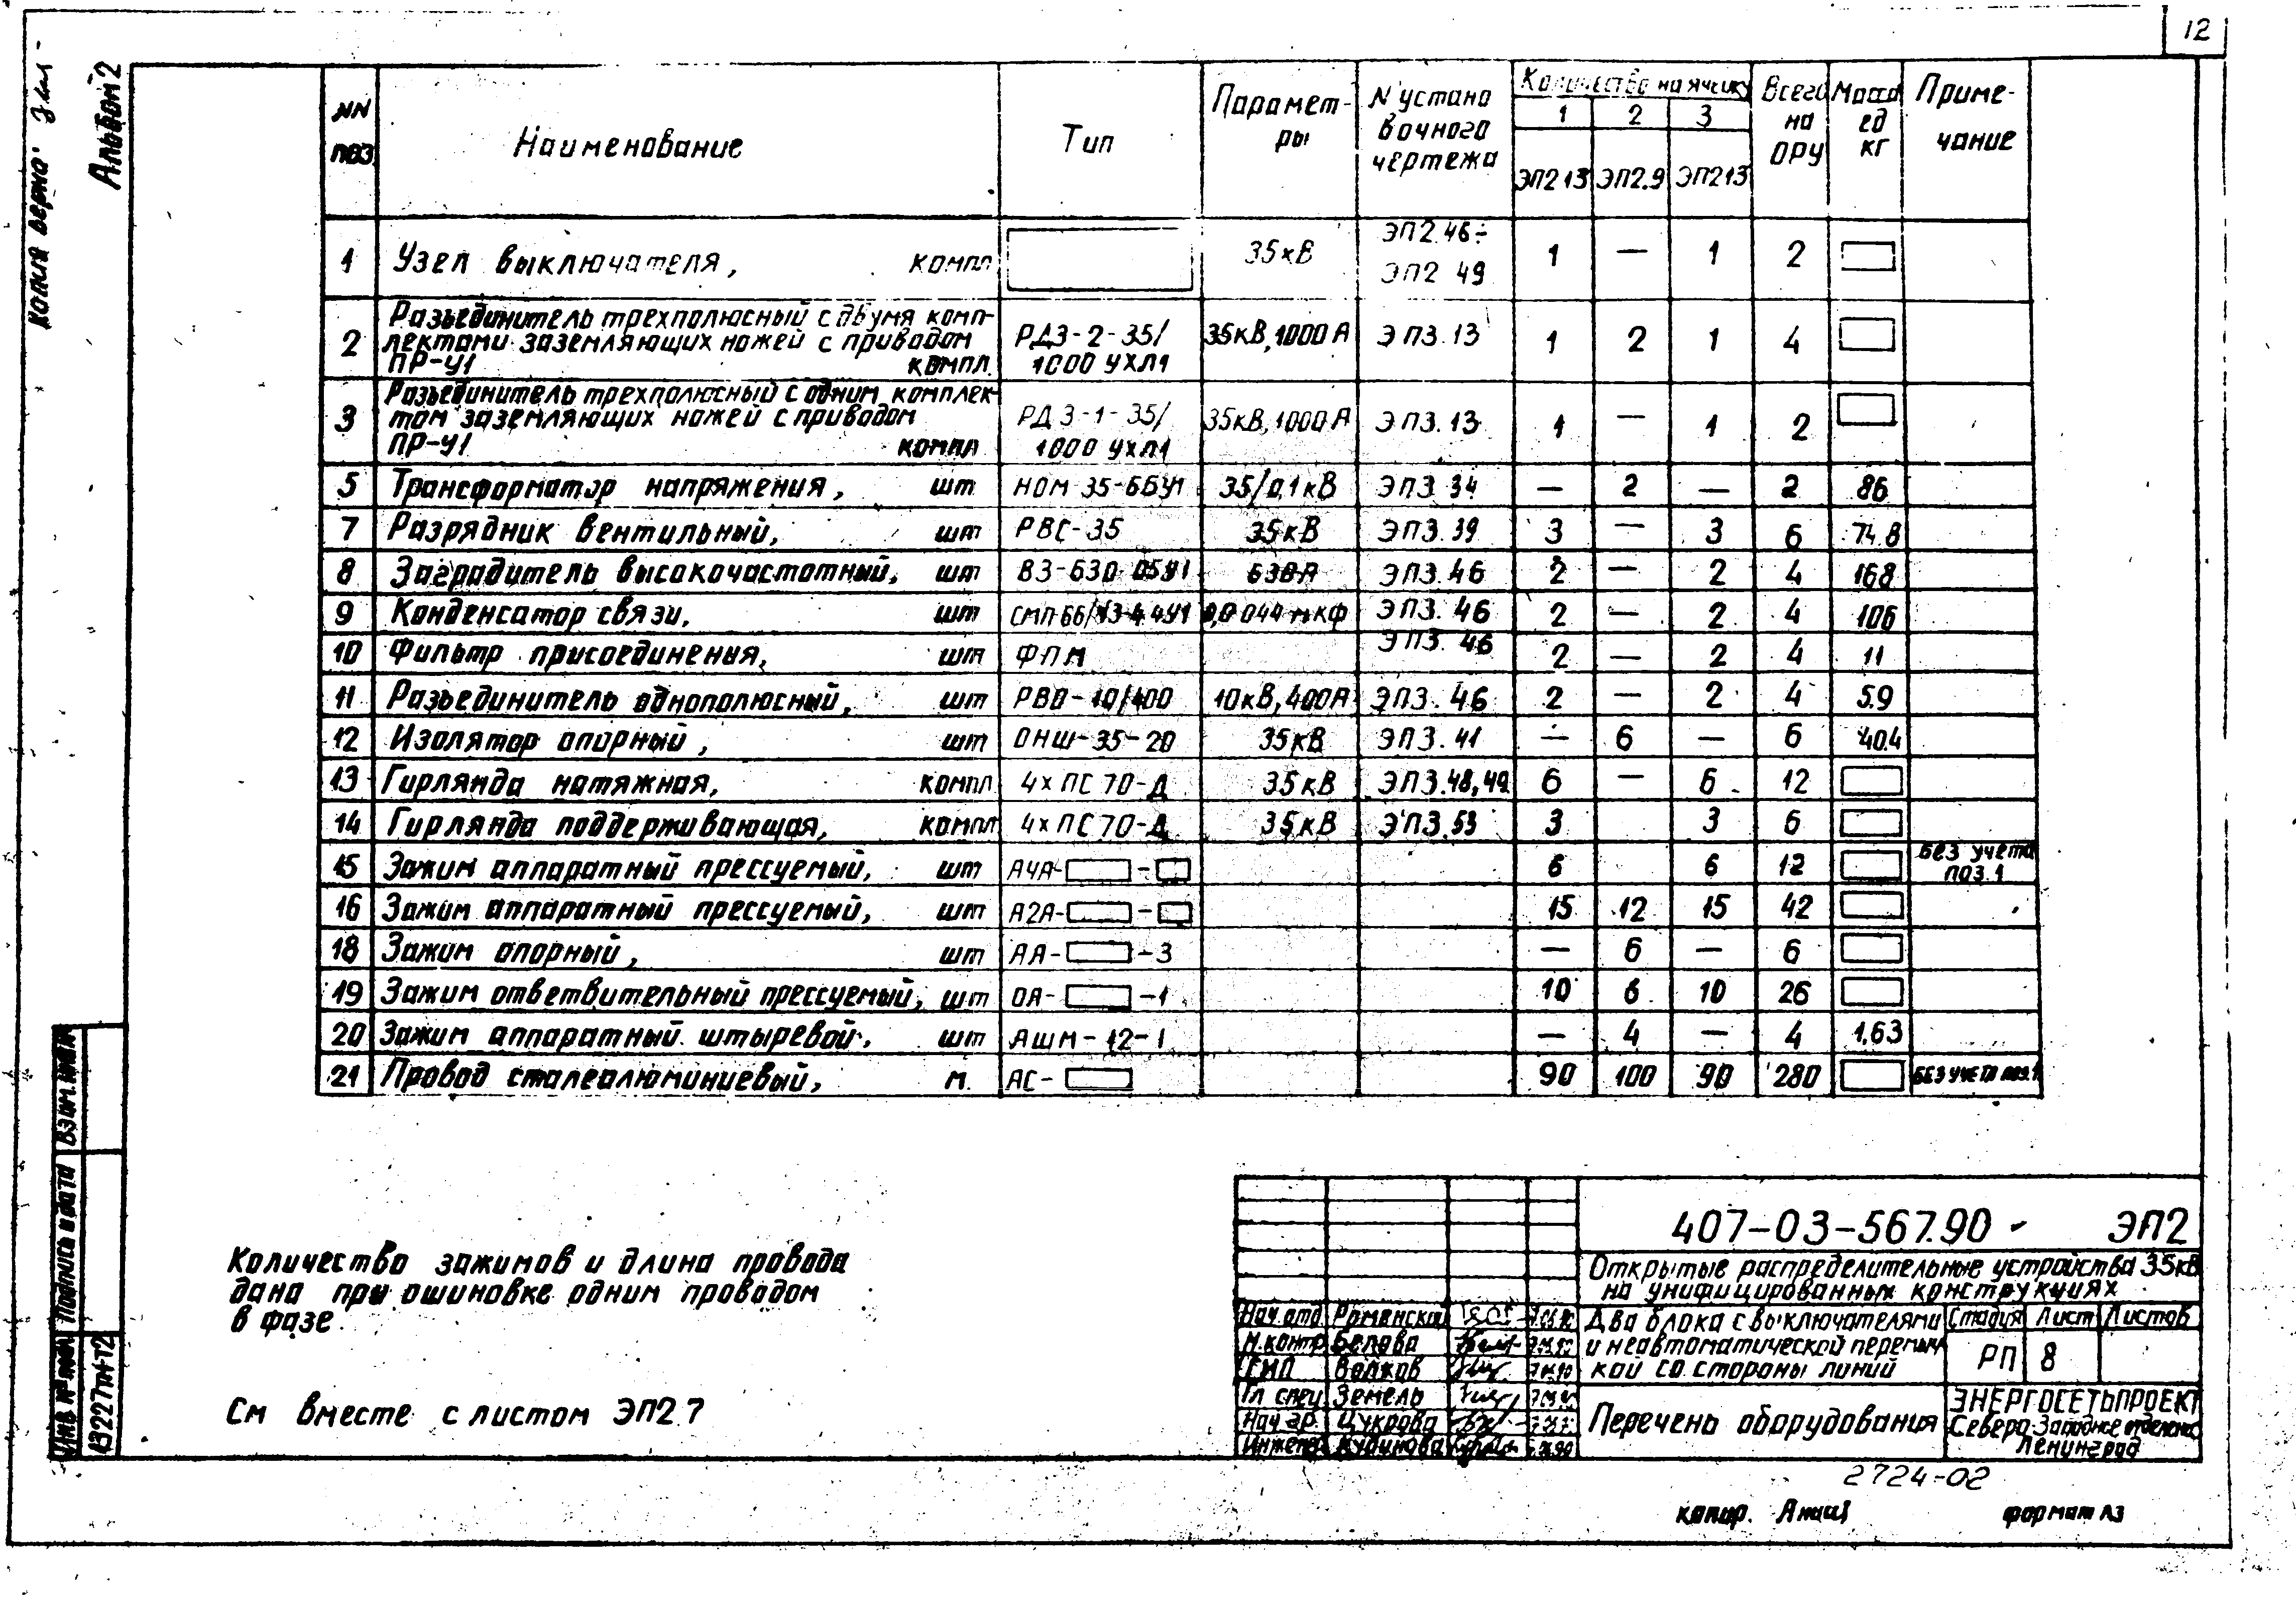 12
Альбом 2
Копия верна
NN поз | Наименование | Тип | Параметры | N установочного чертежа | Количество на ячейку | Всего на ОРУ | Масса ед кг | Примечание
1 | 2 | 3
ЭП2 13 | ЭП2.9 | ЭП2 13
1 | Узел выключателя, компл | 35кВ | ЭП2.46÷ ЭП2 49 | 1 | — | 1 | 2
2 | Разъединитель трехполюсный с двумя комплектами заземляющих ножей с приводом ПР-У1 компл. | РДЗ-2-35/1000 УХЛ1 | 35кВ, 1000 А | ЭП3.13 | 1 | 2 | 1 | 4
3 | Разъединитель трехполюсный с одним комплектом заземляющих ножей с приводом ПР-У1 компл | РДЗ-1-35/1000 УХЛ1 | 35кВ, 1000 А | ЭП3.13 | 1 | — | 1 | 2
5 | Трансформатор напряжения, шт | НОМ 35-66У1 | 35/0,1кВ | ЭП3.34 | — | 2 | — | 2 | 86
7 | Разрядник вентильный, шт | РВС-35 | 35кВ | ЭП3.39 | 3 | — | 3 | 6 | 74.8
8 | Заградитель высокочастотный, шт | ВЗ-630-05У1 | 630А | ЭП3.46 | 2 | — | 2 | 4 | 168
9 | Конденсатор связи, шт | СМП-66/√3-4.4У1 | 0,0044 мкФ | ЭП3.46 | 2 | — | 2 | 4 | 106
10 | Фильтр присоединения, шт | ФПМ | ЭП3.46 | 2 | — | 2 | 4 | 11
11 | Разъединитель однополюсный, шт | РВО-10/400 | 10кВ, 400А | ЭП3.46 | 2 | — | 2 | 4 | 5.9
12 | Изолятор опорный, шт | ОНШ-35-20 | 35кВ | ЭП3.41 | — | 6 | — | 6 | 40.4
13 | Гирлянда натяжная, компл | 4хПС 70-Д | 35кВ | ЭП3.48,49 | 6 | — | 6 | 12
14 | Гирлянда поддерживающая, компл | 4хПС 70-Д | 35кВ | ЭП3.53 | 3 | 3 | 6
15 | Зажим аппаратный прессуемый, шт | А4А- - | 6 | 6 | 12 | Без учета поз. 1
16 | Зажим аппаратный прессуемый, шт | А2А- - | 15 | 12 | 15 | 42
18 | Зажим опорный, шт | АА- -3 | — | 6 | — | 6
19 | Зажим ответвительный прессуемый, шт | ОА- -1 | 10 | 6 | 10 | 26
20 | Зажим аппаратный штыревой, шт | АШМ-12-1 | — | 4 | — | 4 | 1,63
21 | Провод сталеалюминиевый, м. | АС- | 90 | 100 | 90 | 280 | Без учета поз. 1
Количество зажимов и длина провода
дана при ошиновке одним проводом
в фазе
См вместе с листом ЭП2 7
Взам. инв. №
Подпись и дата
Инв № подл
13227тм-т2
407-03-567.90 - ЭП2
Открытые распределительные устройства 35кВ
на унифицированных конструкциях
Нач отд Роменский
Н.контр Белова
ГИП Волков
Гл спец Земель
Нач гр. Цукрова
Инжен
Два блока с выключателями
и неавтоматической перемыч
кой со стороны линий
Стадия Лист Листов
РП 8
Перечень оборудования
ЭНЕРГОСЕТЬПРОЕКТ
Северо-Западное отделение
Ленинград
2724-02
копир. формат А3